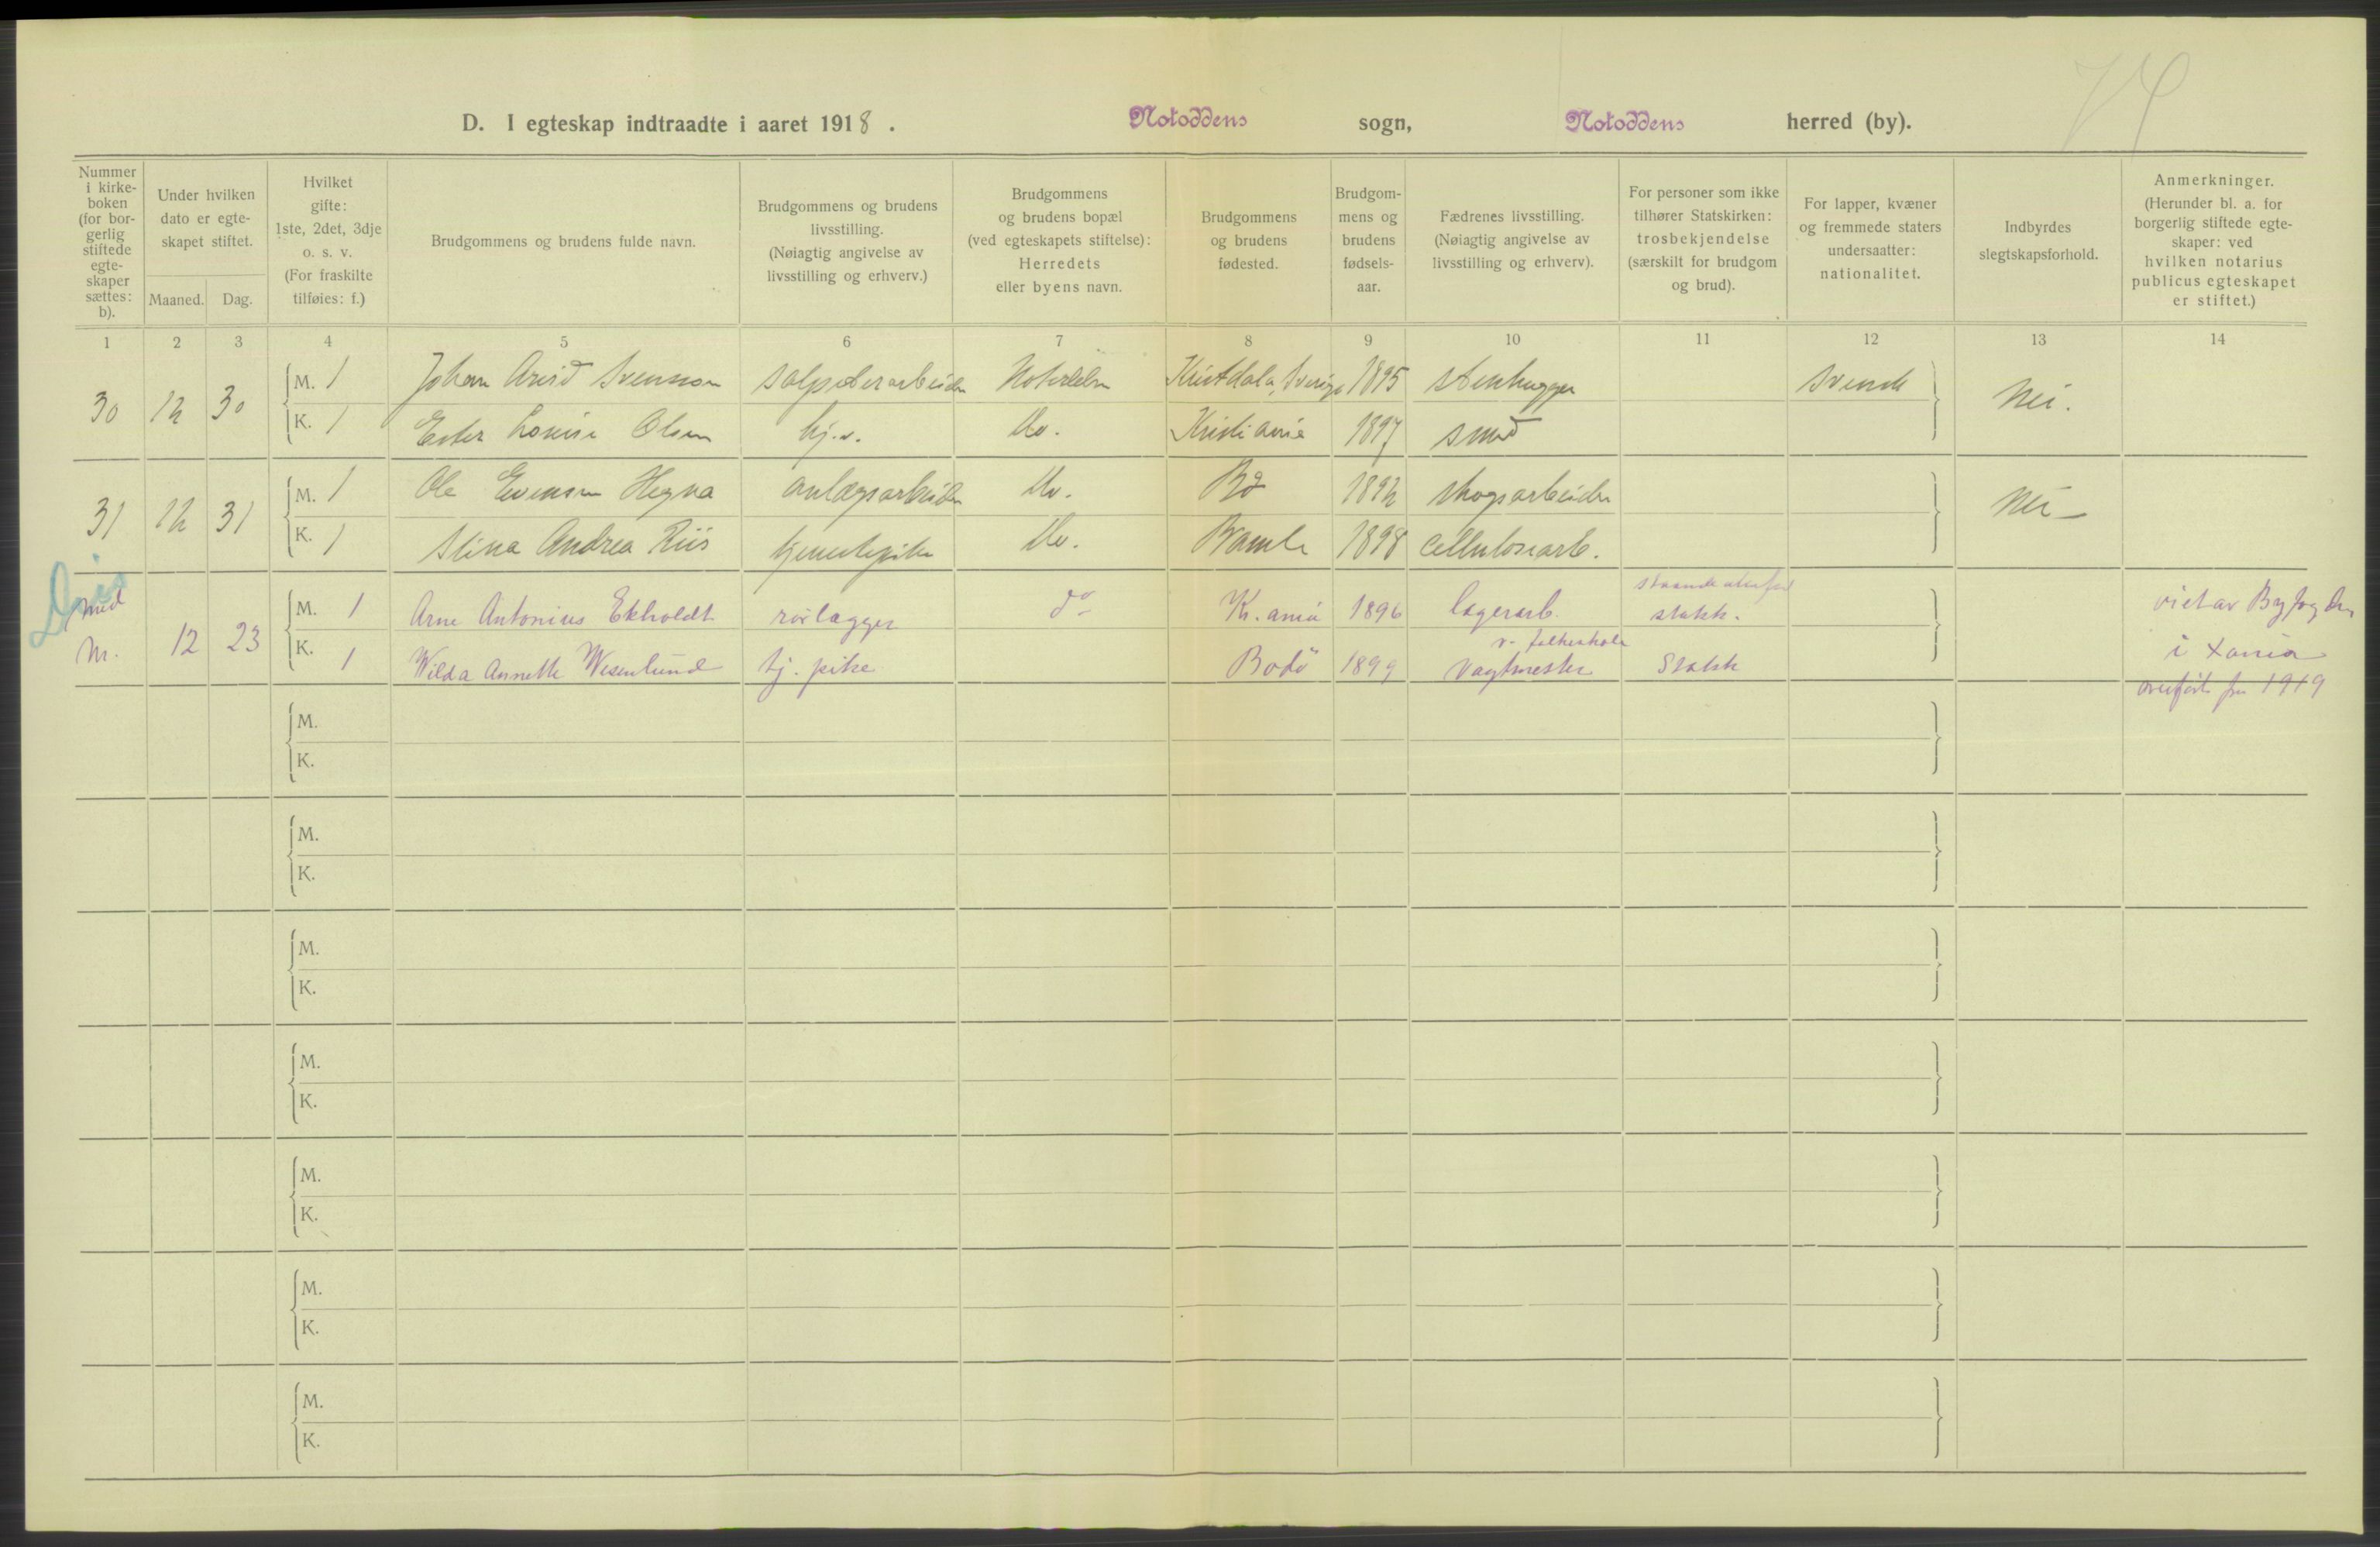 74
D. I egteskap indtraadte i aaret 1918. Notoddens sogn, Notoddens herred (by).
Nummer i kirke-boken (for bor-gerlig stiftede egte-skaper sættes: b).
Under hvilken dato er egte-skapet stiftet.
Maaned. Dag.
Hvilket gifte: 1ste, 2det, 3dje o. s. v. (For fraskilte tilføies: f.)
Brudgommens og brudens fulde navn.
Brudgommens og brudens livsstilling. (Nøiagtig angivelse av livsstilling og erhverv.)
Brudgommens og brudens bopæl (ved egteskapets stiftelse): Herredets eller byens navn.
Brudgommens og brudens fødested.
Brudgom-mens og brudens fødsels-aar.
Fædrenes livsstilling. (Nøiagtig angivelse av livsstilling og erhverv).
For personer som ikke tilhører Statskirken: trosbekjendelse (særskilt for brudgom og brud).
For lapper, kvæner og fremmede staters undersaatter: nationalitet.
Indbyrdes slegtskapsforhold.
Anmerkninger. (Herunder bl. a. for borgerlig stiftede egte-skaper: ved hvilken notarius publicus egteskapet er stiftet.)
1 2 3 4 5 6 7 8 9 10 11 12 13 14
30 12 30 M. 1 Johan Arvid Svensson salpeterarbeider Notodden Kristdala, Sverige 1895 stenhugger svensk Nei.
K. 1 Ester Louise Olsen hj.v. Do. Kristiania 1897 smed
31 12 31 M. 1 Ole Evensen Hegna anlægsarbeider Do. Bø 1892 skogsarbeider Nei
K. 1 Stina Andrea Riis tjenestepike Do. Bamle 1898 cellulosearb.
M. 12 23 M. 1 Arne Antonius Ekholdt rørlægger do K.ania 1896 lagerarb. statsk. viet av Byfogden
K. 1 Wilda Annette Wesenlund tj. pike Bodø 1899 Vagtmester v. folkeskole Statsk i Xania
overført fra 1919
M.
K.
M.
K.
M.
K.
M.
K.
M.
K.
M.
K.
M.
K.